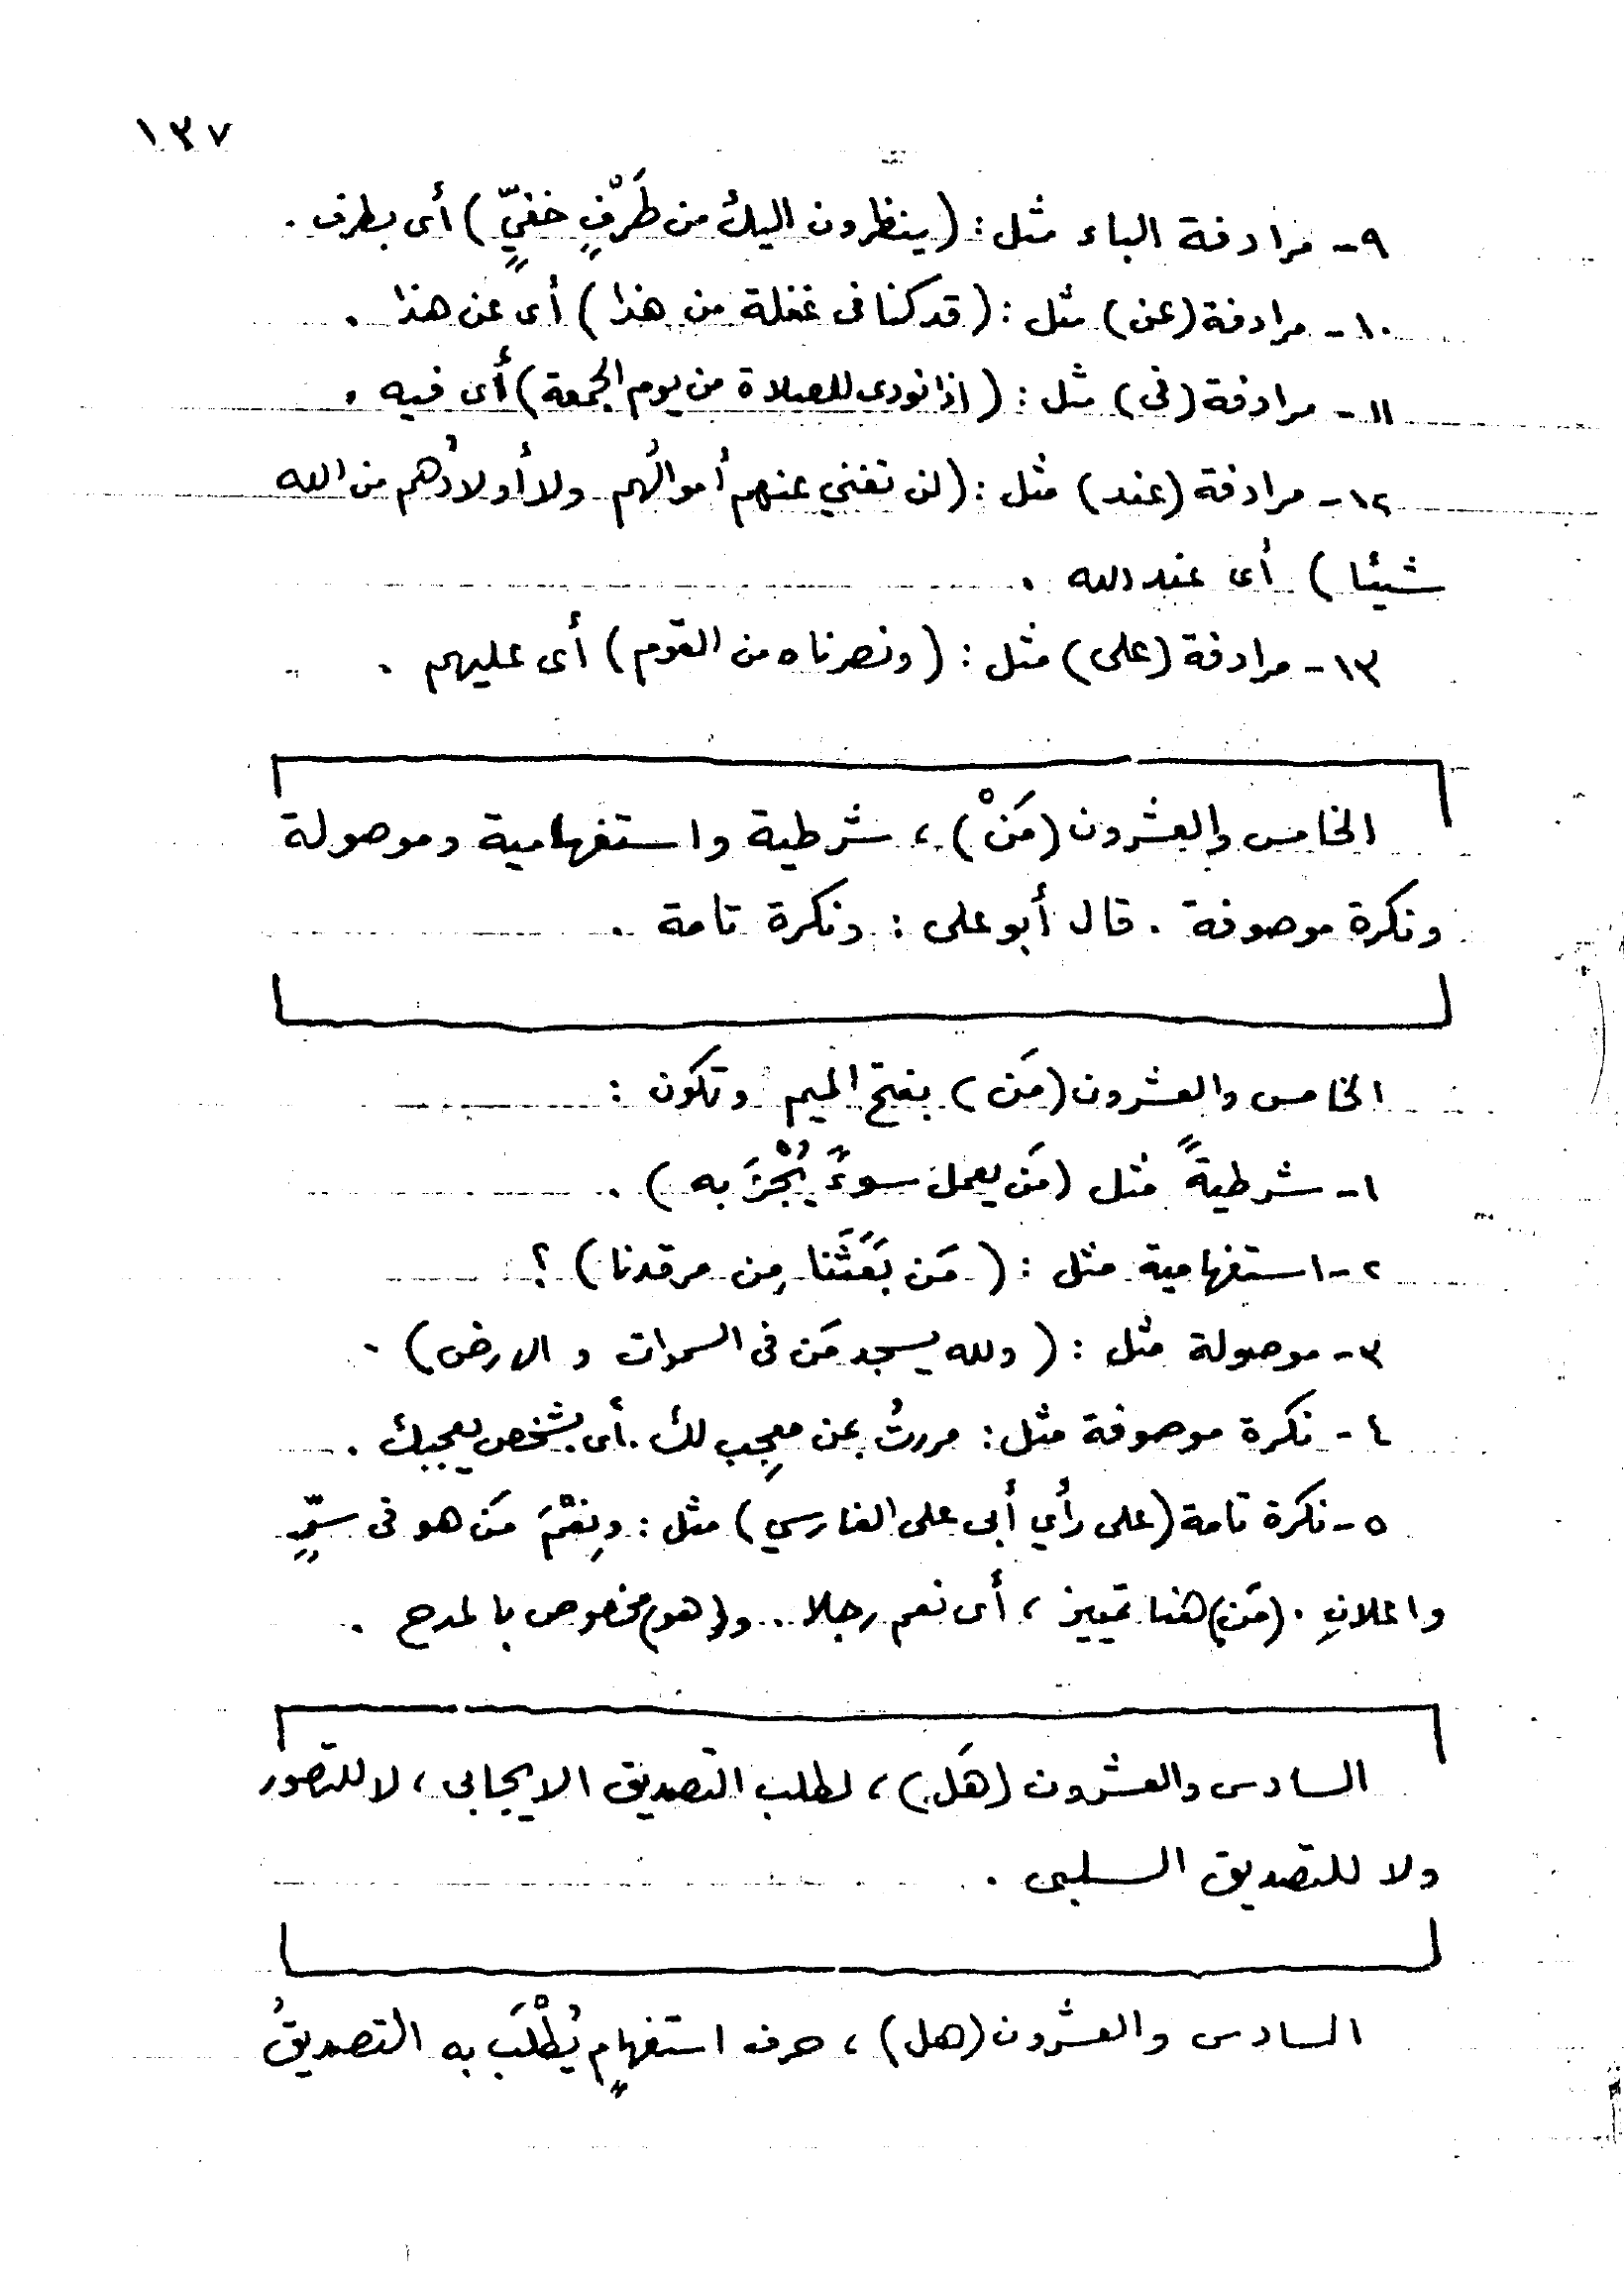 ١٣٧
٩- مرادفة الباء مثل: (ينظرون اليك من طَرْفٍ خفيٍّ) أى بطرف.
١٠- مرادفة (عن) مثل: (قد كنا فى غفلة من هذا) أى عن هذا.
١١- مرادفة (فى) مثل: (اذا نودى للصلاة من يوم الجمعة) أى فيه.
١٢- مرادفة (عند) مثل: (لن تغني عنهم أموالُهم ولا أولادُهم من الله
شيئا) أى عند الله.
١٣- مرادفة (على) مثل: (ونصرناه من القوم) أى عليهم.
الخامس والعشرون (مَنْ)، شرطية واستفهامية وموصولة
ونكرة موصوفة. قال أبو على: ونكرة تامة.
الخامس والعشرون (مَن) بفتح الميم وتكون:
١- شرطيةً مثل (مَن يعمل سوءً يُجْزَ به).
٢- استفهامية مثل: (مَن بَعَثَنا مِن مرقدنا)؟
٣- موصولة مثل: (ولله يسجد مَن فى السموات و الارض).
٤- نكرة موصوفة مثل: مررتُ بمن معجِب لك. أى بشخص يعجبك.
٥- نكرة تامة (على رأي أبى على الفارسي) مثل: ونِعْمَ مَن هو فى سرٍّ
واعلانِ. (مَن) هنا تمييز، أى نعم رجلا.. و(هو) مخصوص بالمدح.
السادس والعشرون (هَل)، لطلب التصديق الايجابى، لا للتصور
ولا للتصديق السلبى.
السادس والعشرون (هل)، حرف استفهامٍ يُطْلَب به التصديقُ